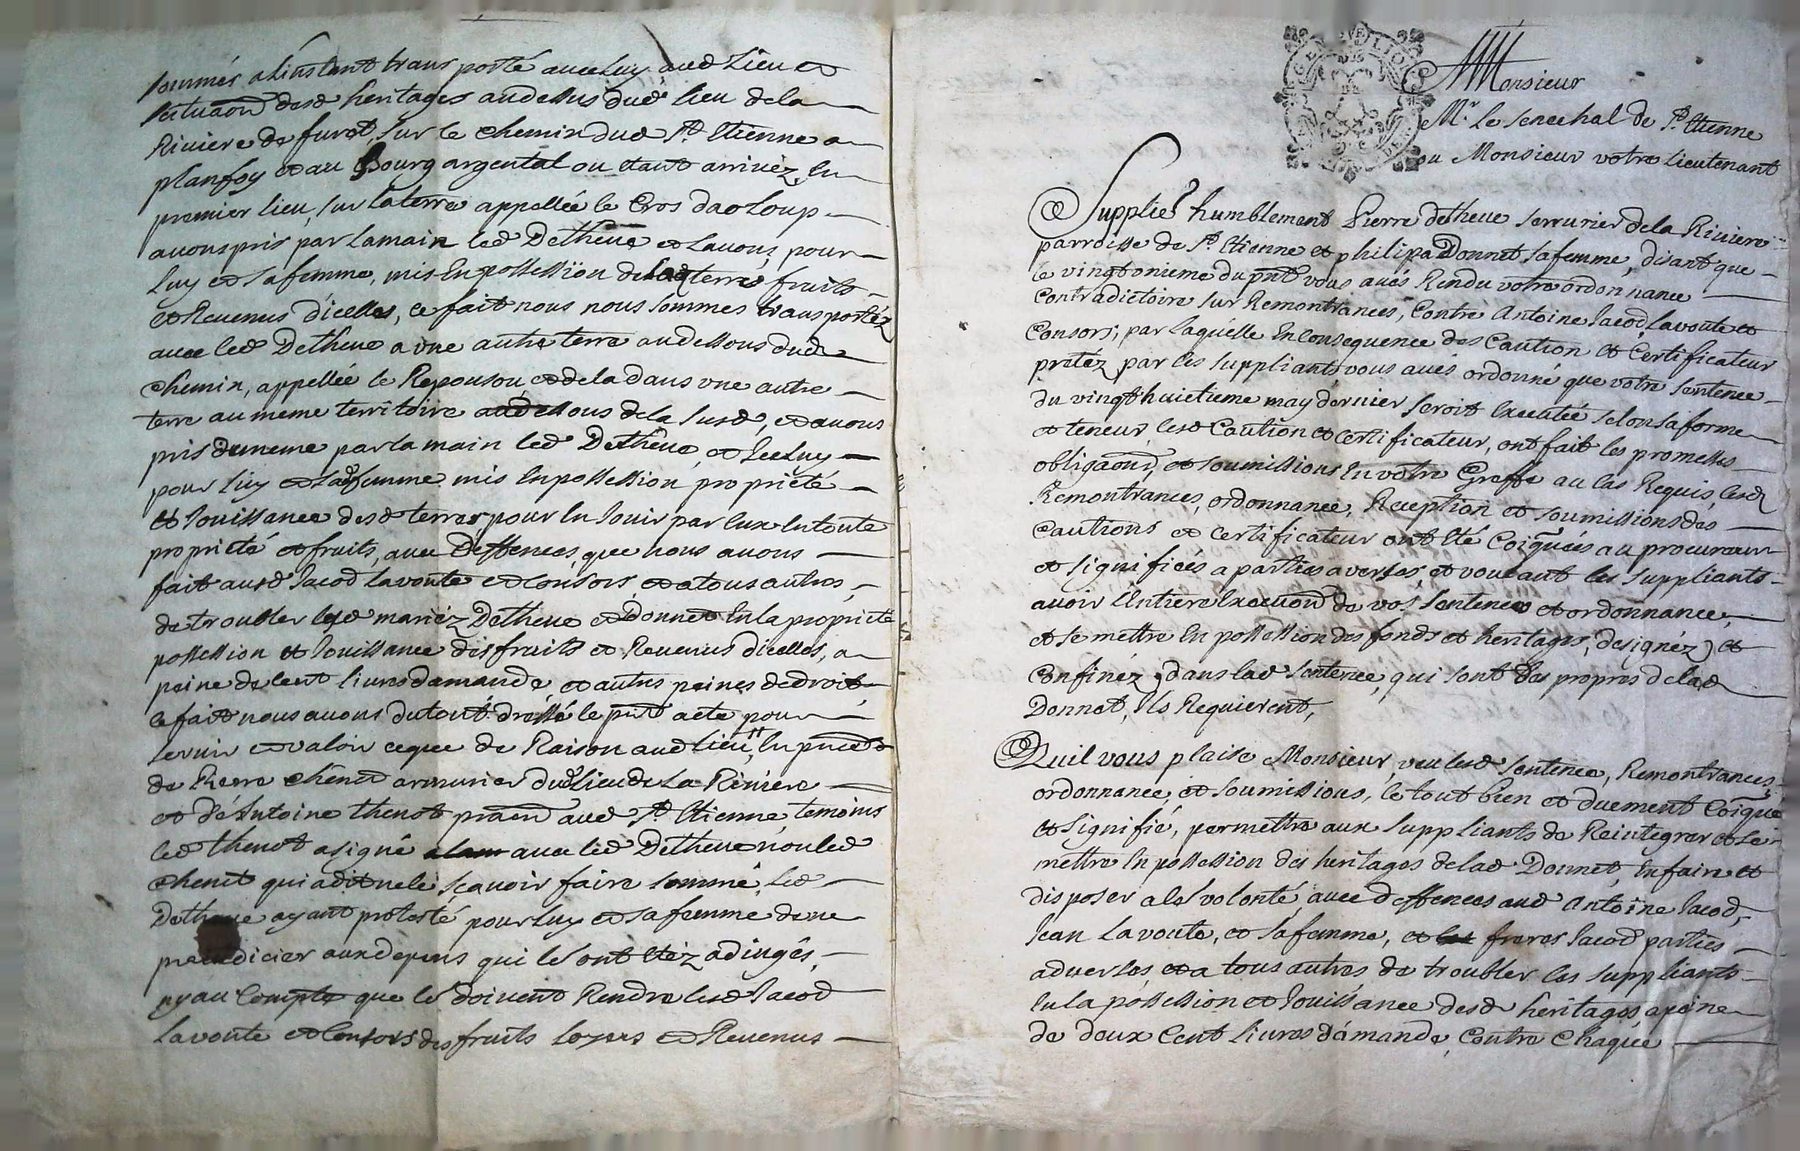 sommés alinstant transporté avec luy aud Lieu et
situaõn desd heritages audessus dud lieu dela
Riviere de furet, sur le chemin dud St. Etienne a
planfoy et au Bourg argental ou etant arrivéz, En
premier lieu, sur laterre appellée le Cros dao Loup
avons pris par lamain led Detheve et Lavons, pour
luy et safemme, mis En possession de lad terre fruits
et Revenus dicelles, ce fait nous nous sommes transportéz
avec led Detheve a une autre terre audessous dud
chemin, appellée le Repousou et dela dans une autre
terre au meme territoire audessous dela susd, et avons
pris dememe par la main led Detheve, et Iceluy
pour luy et sad femme mis En possession, proprieté
et Jouissance desd terres pour En Jouir par Eux En toute
proprieté et fruits, avec Deffences, que nous avons
fait ausd Jacod Lavoute et Consors, et a tous autres,
de troubler lesd mariéz Detheve et Donnet En la proprieté
possession et Jouissance des fruits et Revenus dicelles, a
peine de Cent livres damande, et autres peines de droit
ce fait nous avons du tout dressé le pnt acte pour
servir et valoir ce que de Raison aud Lieu, En pñce
de Pierre Chenet armurier dud lieu de La Riviere
et de Antoine Thenot praõn aud St. Etienne, temoins
led Thenot a signé avec led Detheve non led
Chenet qui a dit ne le sçavoir faire sommé, Led
Detheve ayant protesté pour luy et sa femme de ne
prejudicier aux depens qui le ont Etéz adjugés,
ny au Compte que le doivent Rendre lesd Jacod
Lavoute et Consors des fruits loyers et Revenus
A Monsieur
Mr. Le Senechal de St. Etienne
ou Monsieur votre Lieutenant
Supplient humblement Pierre detheve serrurier dela Riviere
parroisse de St. Etienne et philipa Donnet safemme, disant que
le vingtonieme du pnt vous avés Rendu votre ordonnance
Contradictoire sur Remontrances, Contre Antoine Jacod, Lavoute et
Consors; par laquelle En Consequence des Caution et Certificateur
pretéz par les suppliants vous avés ordonné que votre sentence
du vingthuictieme may dernier seroit Executée selon sa forme
et teneur, lesd Caution et Certificateur, ont fait les promesses
obligaons, et soumissions En votre Greffe au Cas Requis, lesd
Remontrances, ordonnance, Reception et soumissions des
Cautions et Certificateur ont Eté Coigñées au procureur
et signifiés a parties averses, et voulant les suppliants
avoir Entiere Execuõn de vos sentence et ordonnance,
et se mettre En possession des fonds et heritages, designéz et
Confinéz, dans lad sentence, qui sont Les propres de lad
Donnet, Ils Requierent,
Quil vous plaise Monsieur, veu lesd sentence, Remontrances,
ordonnance, et soumissions, le tout bien et duement Coigñé
et signifié, permettre aux suppliants de Reintegrer et se
mettre En possession des heritages de lad Donnet, En faire et
disposer a le volonté, avec deffences aud Antoine Jacod,
Jean Lavoute, et safemme, et freres Jacod parties
adverses et a tous autres de troubler les suppliants
En la possession et Jouissance desd heritages a peine
de deux Cent Livres damande, Contre Chaque